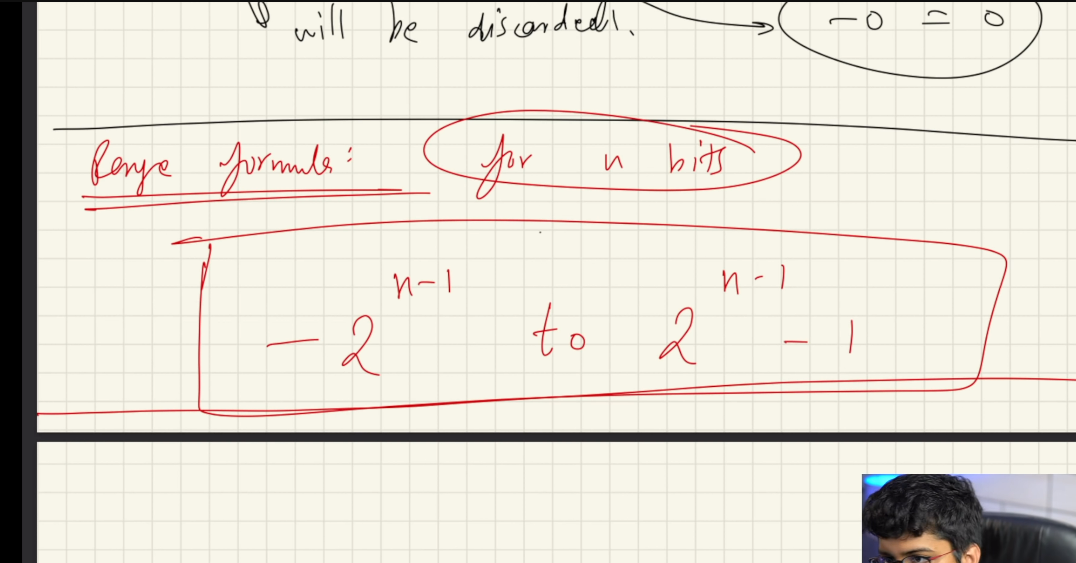 will be discarded. -0 = 0
Range formula: for n bits
-2^{n-1} to 2^{n-1} - 1